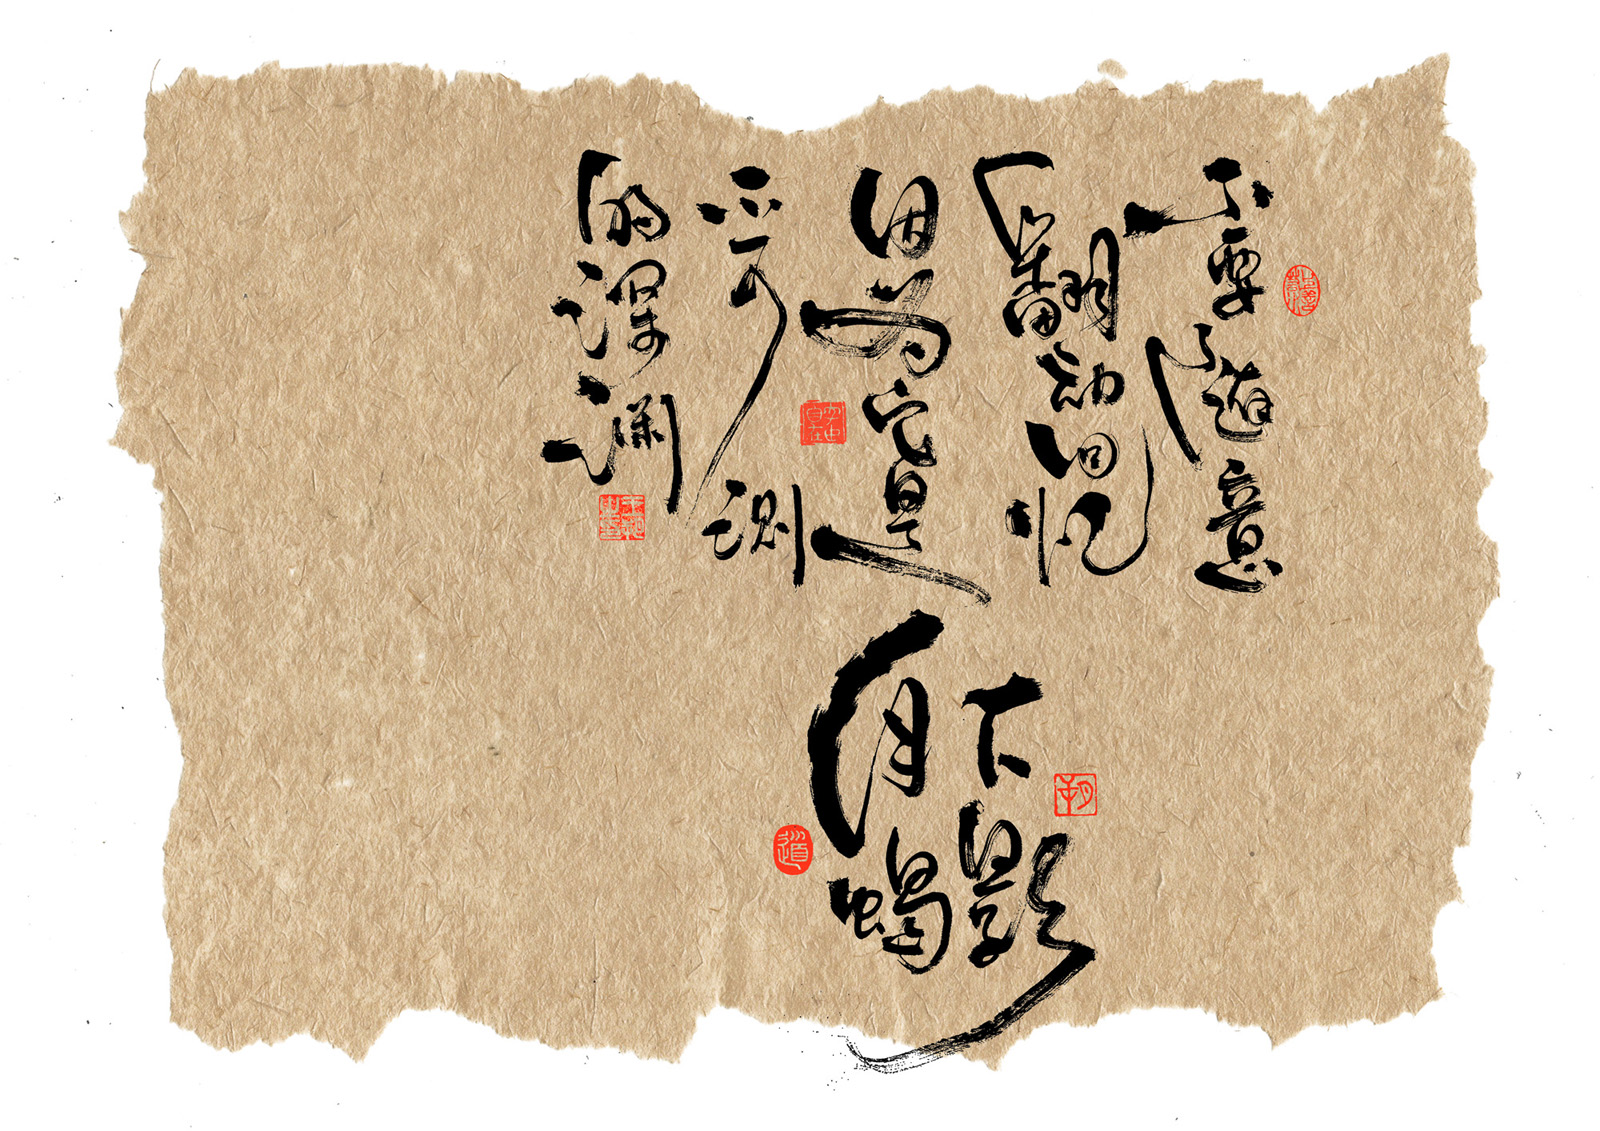 不要随意
翻动回忆
因为它是
不可测
的深渊
下影
月蝎
道